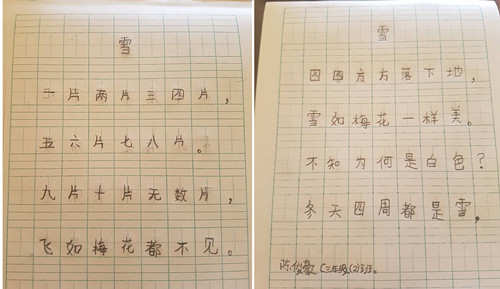 雪
一片两片三四片，
五六片七八片。
九片十片无数片，
飞如梅花都不见。
雪
四四方方落下地，
雪如梅花一样美。
不知为何是白色？
冬天四周都是雪，
陈俊豪（三年级（2）班。